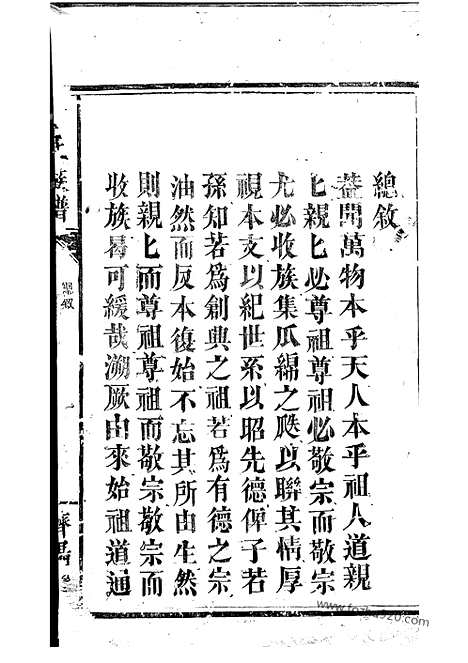 總敘
蓋聞萬物本乎天人本乎祖人道親
匕親匕必尊祖尊祖必敬宗而敬宗
尤必收族集瓜綿之瓞以聯其情厚
視本支以紀世系以昭先德俾子若
孫知若爲創典之祖若爲有德之宗
油然而反本復始不忘其所由生然
則親匕而尊祖尊祖而敬宗敬宗而
收族曷可緩哉溯厥由來始祖道通
族譜
總敘